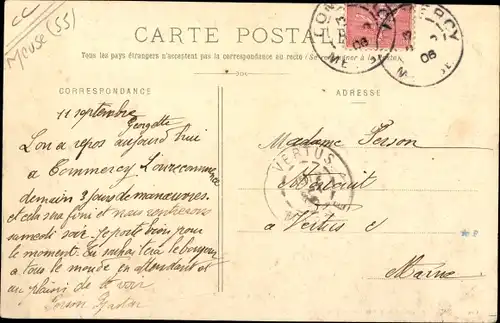 Meuse (55)
CARTE POSTALE
Tous les pays étrangers n'acceptent pas la correspondance au recto
CORRESPONDANCE
ADRESSE
11 septembre
Georgette
L'on a repos aujourd'hui
a Commercy L'on recommence
demain 3 jours de manœuvres
et cela sera fini et nous rentrerons
samedi soir. Je porte bien pour
le moment. Tu souhaitera le bonjour
a tous le monde en attendant et
au plaisir de te voir
Person
Madame Person
a Vertus
Marne
VERTUS
08
08